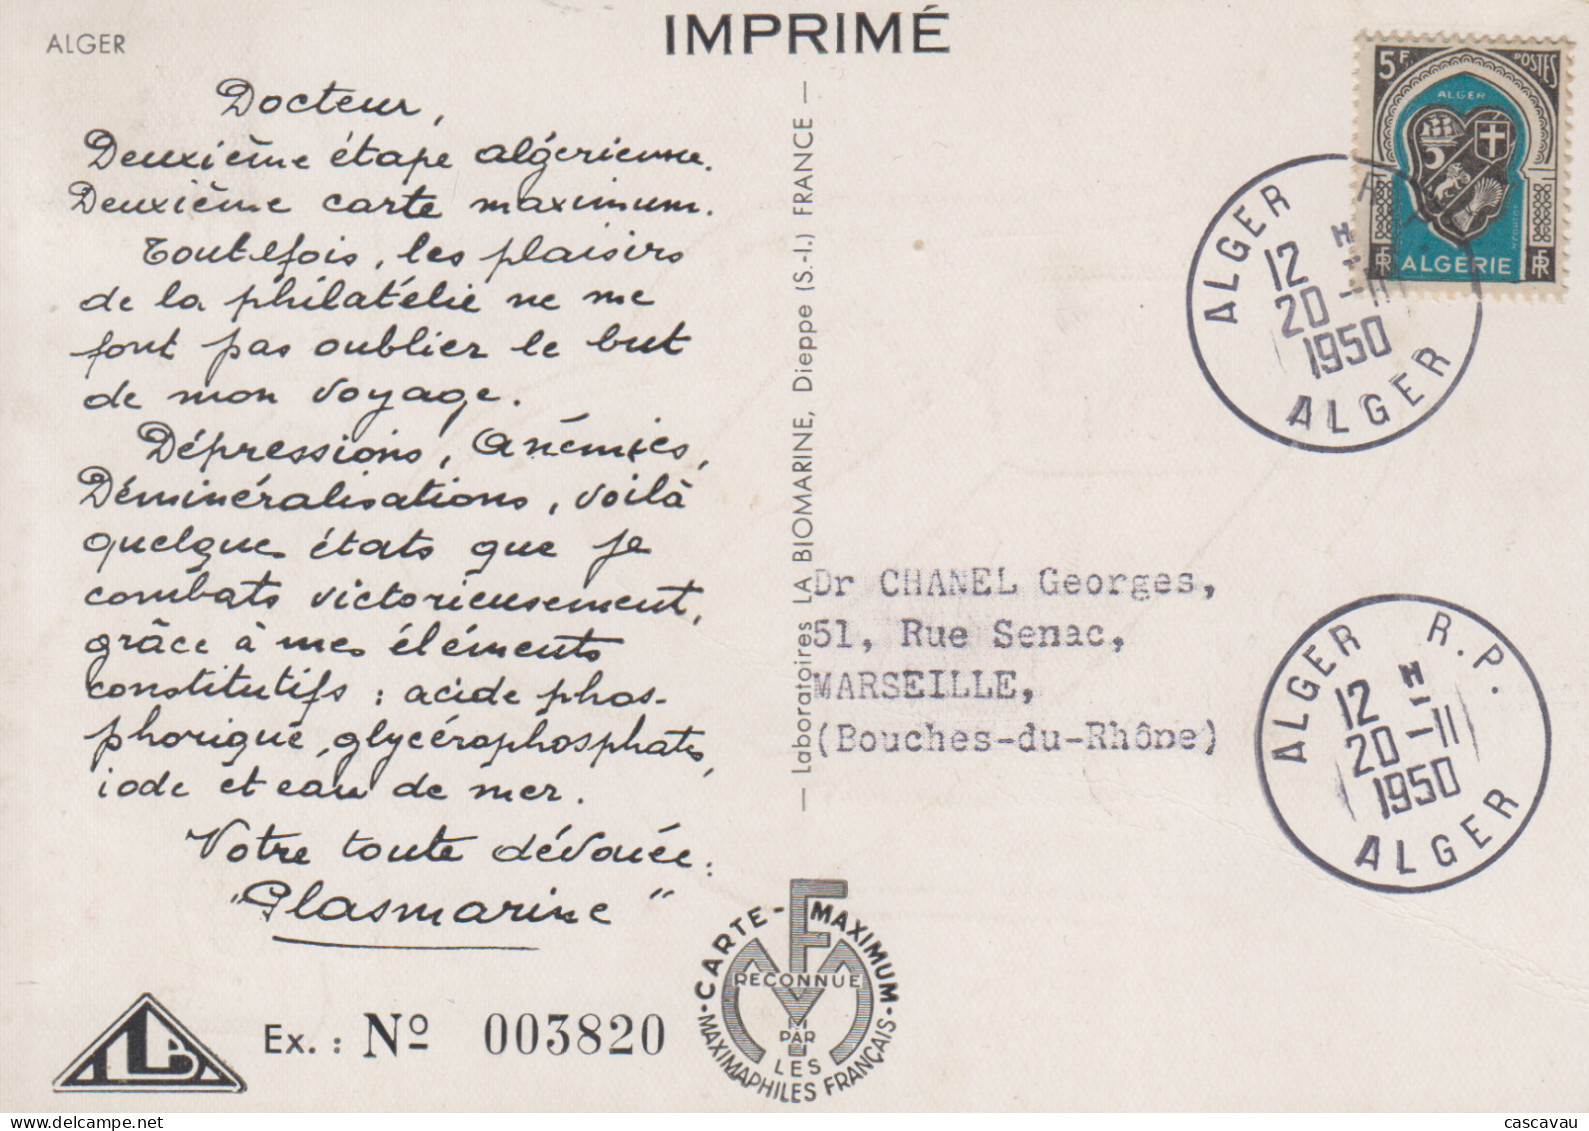 IMPRIMÉ
ALGER
Docteur,
Deuxième étape algérienne.
Deuxième carte maximum.
Toutefois, les plaisirs
de la philatélie ne me
font pas oublier le but
de mon voyage.
Dépressions, Anémies,
Déminéralisations, voilà
quelques états que je
combats victorieusement,
grâce à mes éléments
constitutifs : acide phos-
phorique, glycérophosphates,
iode et eau de mer.
Votre toute dévouée :
"Plasmarine"
Ex. : Nº 003820
CARTE-MAXIMUM
RECONNUE
PAR
LES
MAXIMAPHILES FRANÇAIS
— Laboratoires LA BIOMARINE, Dieppe (S.-I.) FRANCE —
5F POSTES
ALGER
RF ALGERIE RF
ALGER R.
12 H
20-11
1950
ALGER
Dr CHANEL Georges,
51, Rue Senac,
MARSEILLE,
(Bouches-du-Rhône)
ALGER R.P.
12 H
20-11
1950
ALGER
cascavau